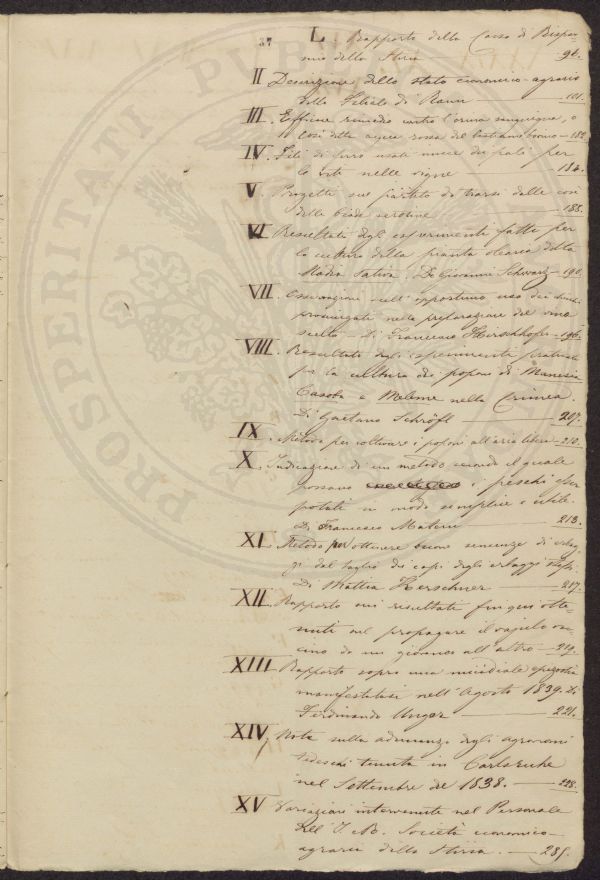 37 I. Rapporto della Cassa di Rispar
mio della Stiria — 98.
II Descrizione dello stato economico-agrario
della Filiale di Rann — 101.
III. Efficace rimedio contro l'orina sanguigna, o
così detta acqua rossa del bestiame bovino — 182
IV. Fili di ferro usati invece dei pali per
le viti nelle vigne — 184.
V. Progetti sul partito da trarsi dalle così
dette biade serotine — 188.
VI Resultati degli esperimenti fatti per
la cultura della pianta olearia della
Madia Sativa. Di Giovanni Schwarz — 190.
VII. Osservazioni sull'opportuno uso dei
nella preparazione del vino
Di Francesco Hirschhofer — 196.
VIII. Resultati degli esperimenti praticati
per la cultura dei poponi di
Casaba e Melone nella Crimea.
Di Gaetano Schröfl — 207.
IX. Metodo per coltivare i poponi all'aria libera — 210.
X. Indicazione di un metodo secondo il quale
possano i peschi esser
potati in modo semplice e utile.
Di Francesco — 213.
XI. Metodo per ottenere buone semenze di erbag
gi dal taglio dei capi degli erbaggi stessi.
Di Mattia Kerschner — 217.
XII. Rapporto sui resultati fin qui otte
nuti nel propagare il vajolo vac
cino da un giovenco all'altro — 219.
XIII Rapporto sopra una micidiale epizoozia
manifestatasi nell'Agosto 1839. Di
Ferdinando Unger — 221.
XIV. Nota sulla adunanza degli agronomi
tedeschi tenuta in Carlsruhe
nel Settembre del 1838. — 228.
XV Variazioni intervenute nel Personale
dell'I. e R. Società economico-
agraria della Stiria. — 285.
PROSPERITATI PUBLICAE